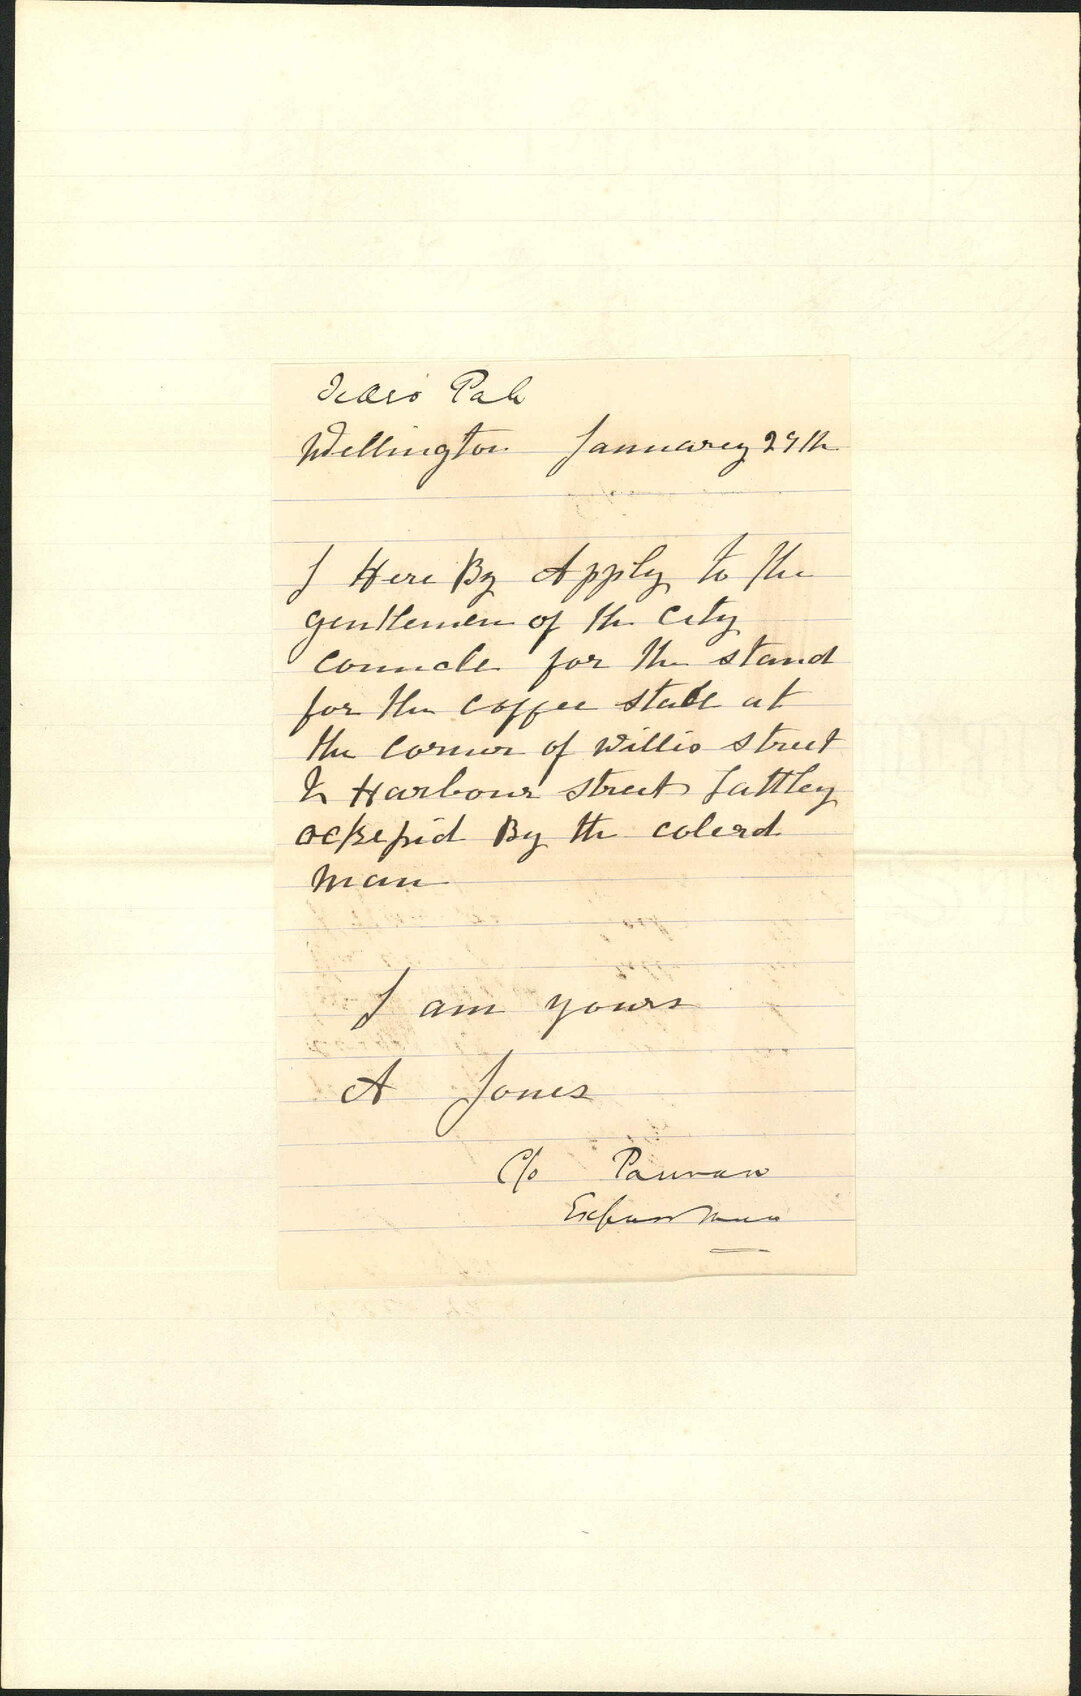 Tearo Pah
Wellington Januarey 29th
I Here By Apply to the
gentlemen of the City
Councle for the stand
for the coffee stall at
the corner of Willis street
& Harbour street Lattley
ockepid By the colerd
man
I am yours
A Jones
C/o
Expressman